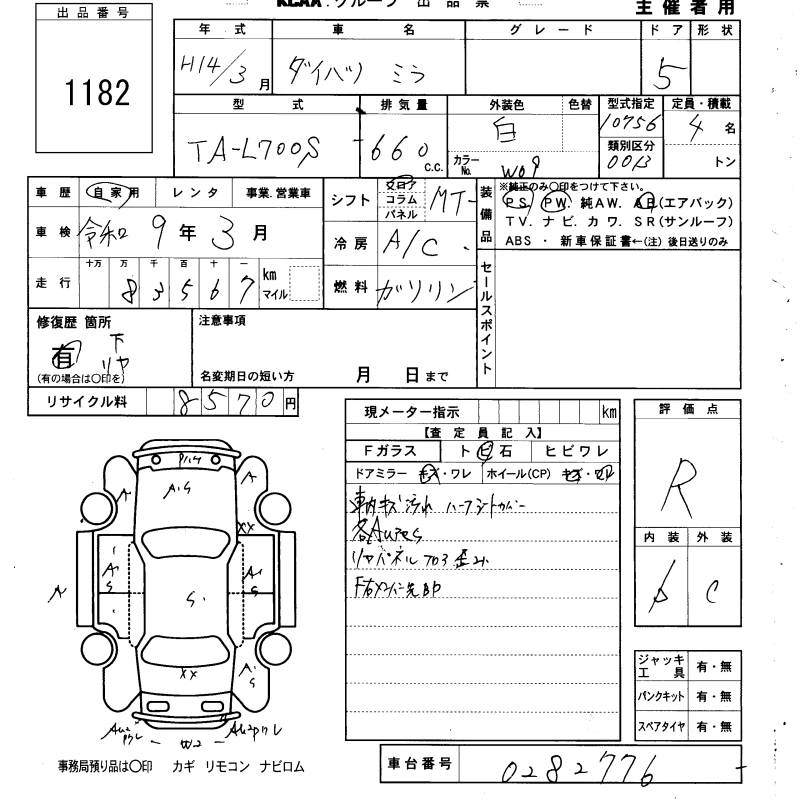 KCAA.グループ 出品票
主催者用
出品番号
1182
年式 車名 グレード ドア 形状
H14/3月 ダイハツ ミラ 5
型式 排気量 外装色 色替 型式指定 定員・積載
TA-L700S 660 c.c. 白 10756 4名
カラーNo. W09 類別区分 0013 トン
車歴 自家用 レンタ 事業.営業車
シフト フロア コラム パネル MT
装備品 ※純正のみ○印をつけて下さい。
PS. PW. 純AW. AB(エアバック)
TV. ナビ. カワ. SR(サンルーフ)
ABS ・ 新車保証書←(注) 後日送りのみ
車検 令和 9年 3月
冷房 A/C
走行 十万 万 千 百 十 一
83567 km マイル
燃料 ガソリン
セールスポイント
修復歴 箇所
有 下 リヤ
(有の場合は○印を)
注意事項
名変期日の短い方 月 日まで
リサイクル料 8570円
現メーター指示 km
【査定員記入】
Fガラス ト ビ 石 ヒビワレ
ドアミラー キズ・ワレ ホイール(CP) キズ・ワレ
車内キズ汚れ ハーフシートカバー
各AUWCS
リヤパネル フロア歪み
F右メンバー先凹
評価点
R
内装 外装
D C
ジャッキ工具 有・無
パンクキット 有・無
スペアタイヤ 有・無
A.S
A
A
XX
A
A
S
A
S
S
XX
A
S
W2
事務局預り品は○印 カギ リモコン ナビロム
車台番号 0282776